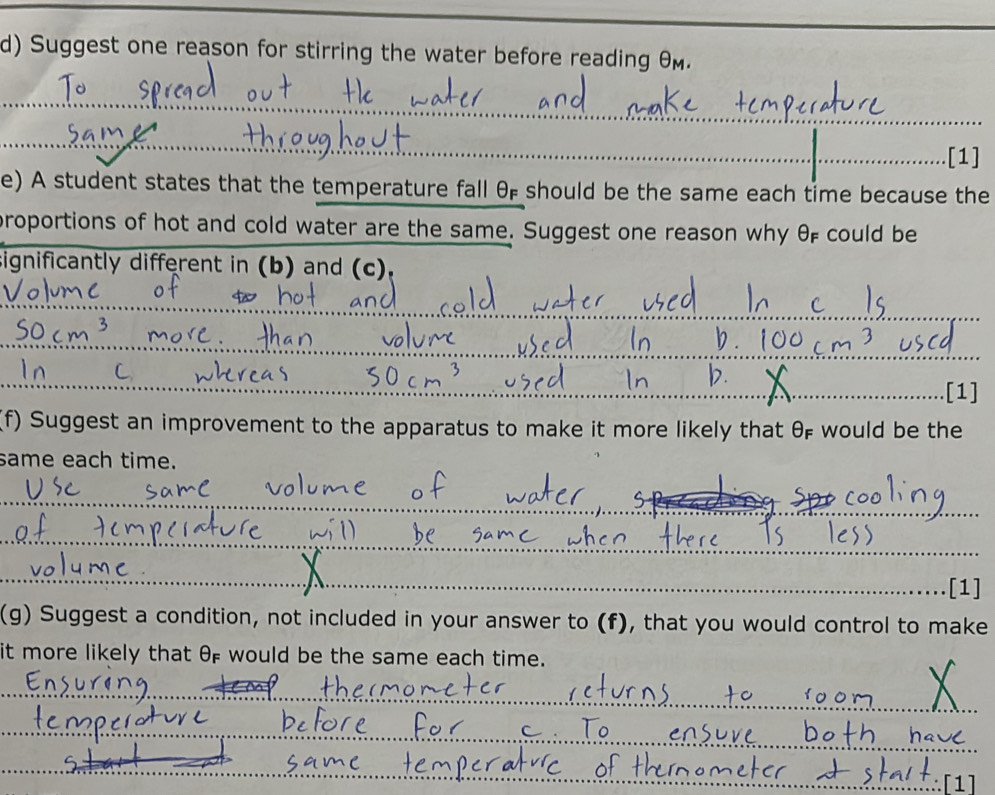 d) Suggest one reason for stirring the water before reading θM.
To spread out the water and make temperature
same throughout
[1]
e) A student states that the temperature fall θF should be the same each time because the
proportions of hot and cold water are the same. Suggest one reason why θF could be
significantly different in (b) and (c).
Volume of hot and cold water used In c Is
50cm³ more. than volume used In b. 100cm³ used
In c whereas 50cm³ used In b.
[1]
(f) Suggest an improvement to the apparatus to make it more likely that θF would be the
same each time.
Use same volume of water, cooling
of temperature will be same when there Is less
volume.
[1]
(g) Suggest a condition, not included in your answer to (f), that you would control to make
it more likely that θF would be the same each time.
Ensuring thermometer returns to room
temperature before for c. To ensure both have
same temperature of thernometer at start.
[1]